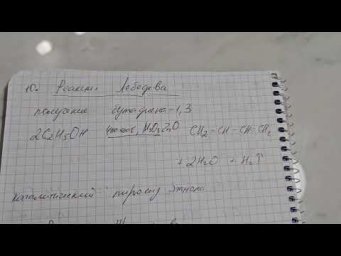 10. Реакция Лебедева
получение бутадиена-1,3
2C₂H₅OH CH₂-CH-CH-CH₂
+ 2H₂O + H₂↑
каталитический пиролиз этанола